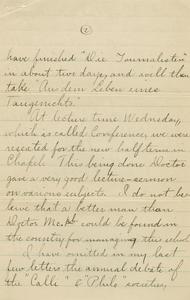 2
have finished "Die Journalisten"
in about two days, and will then
take "Aus dem Leben eines
Taugenichts."
At lecture time Wednesday,
which is called Conference, we were
reseated for the new half-term in
Chapel. This being done Doctor
gave a very good lecture-sermon
on various subjects. I do not be-
lieve that a better man than
Doctor could be found in
the country for managing this school
I have omitted in my last
few letters the annual debate of
the "Calli" & "Philo" societies,